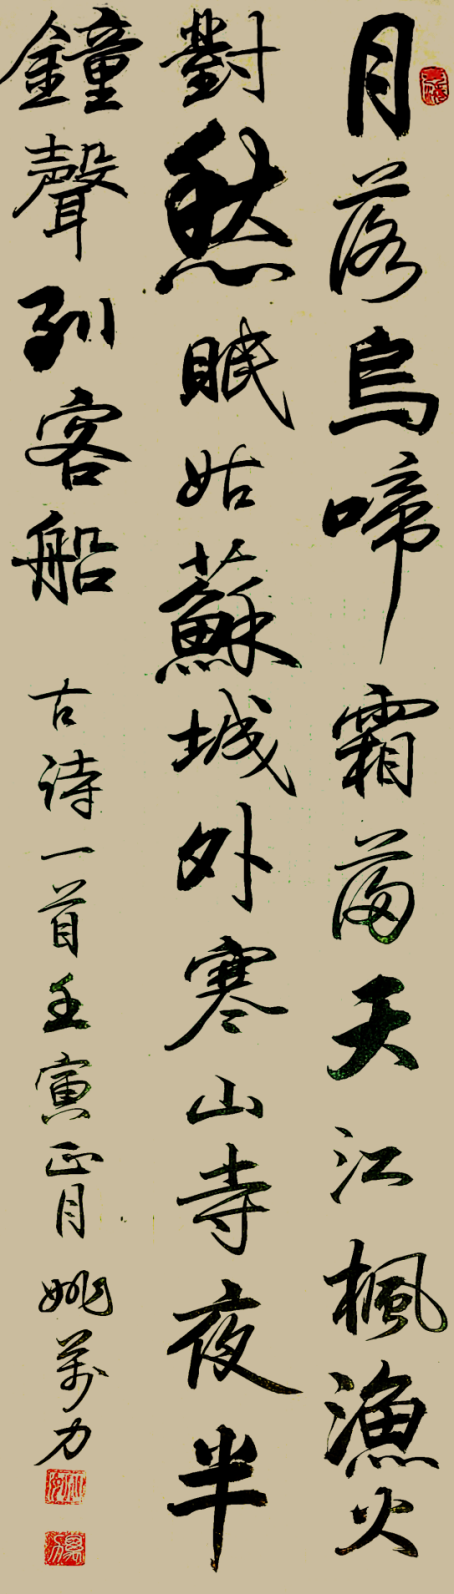 月落烏啼霜滿天江楓漁火
對愁眠姑蘇城外寒山寺夜半
鐘聲到客船 古詩一首壬寅正月 姚萬力